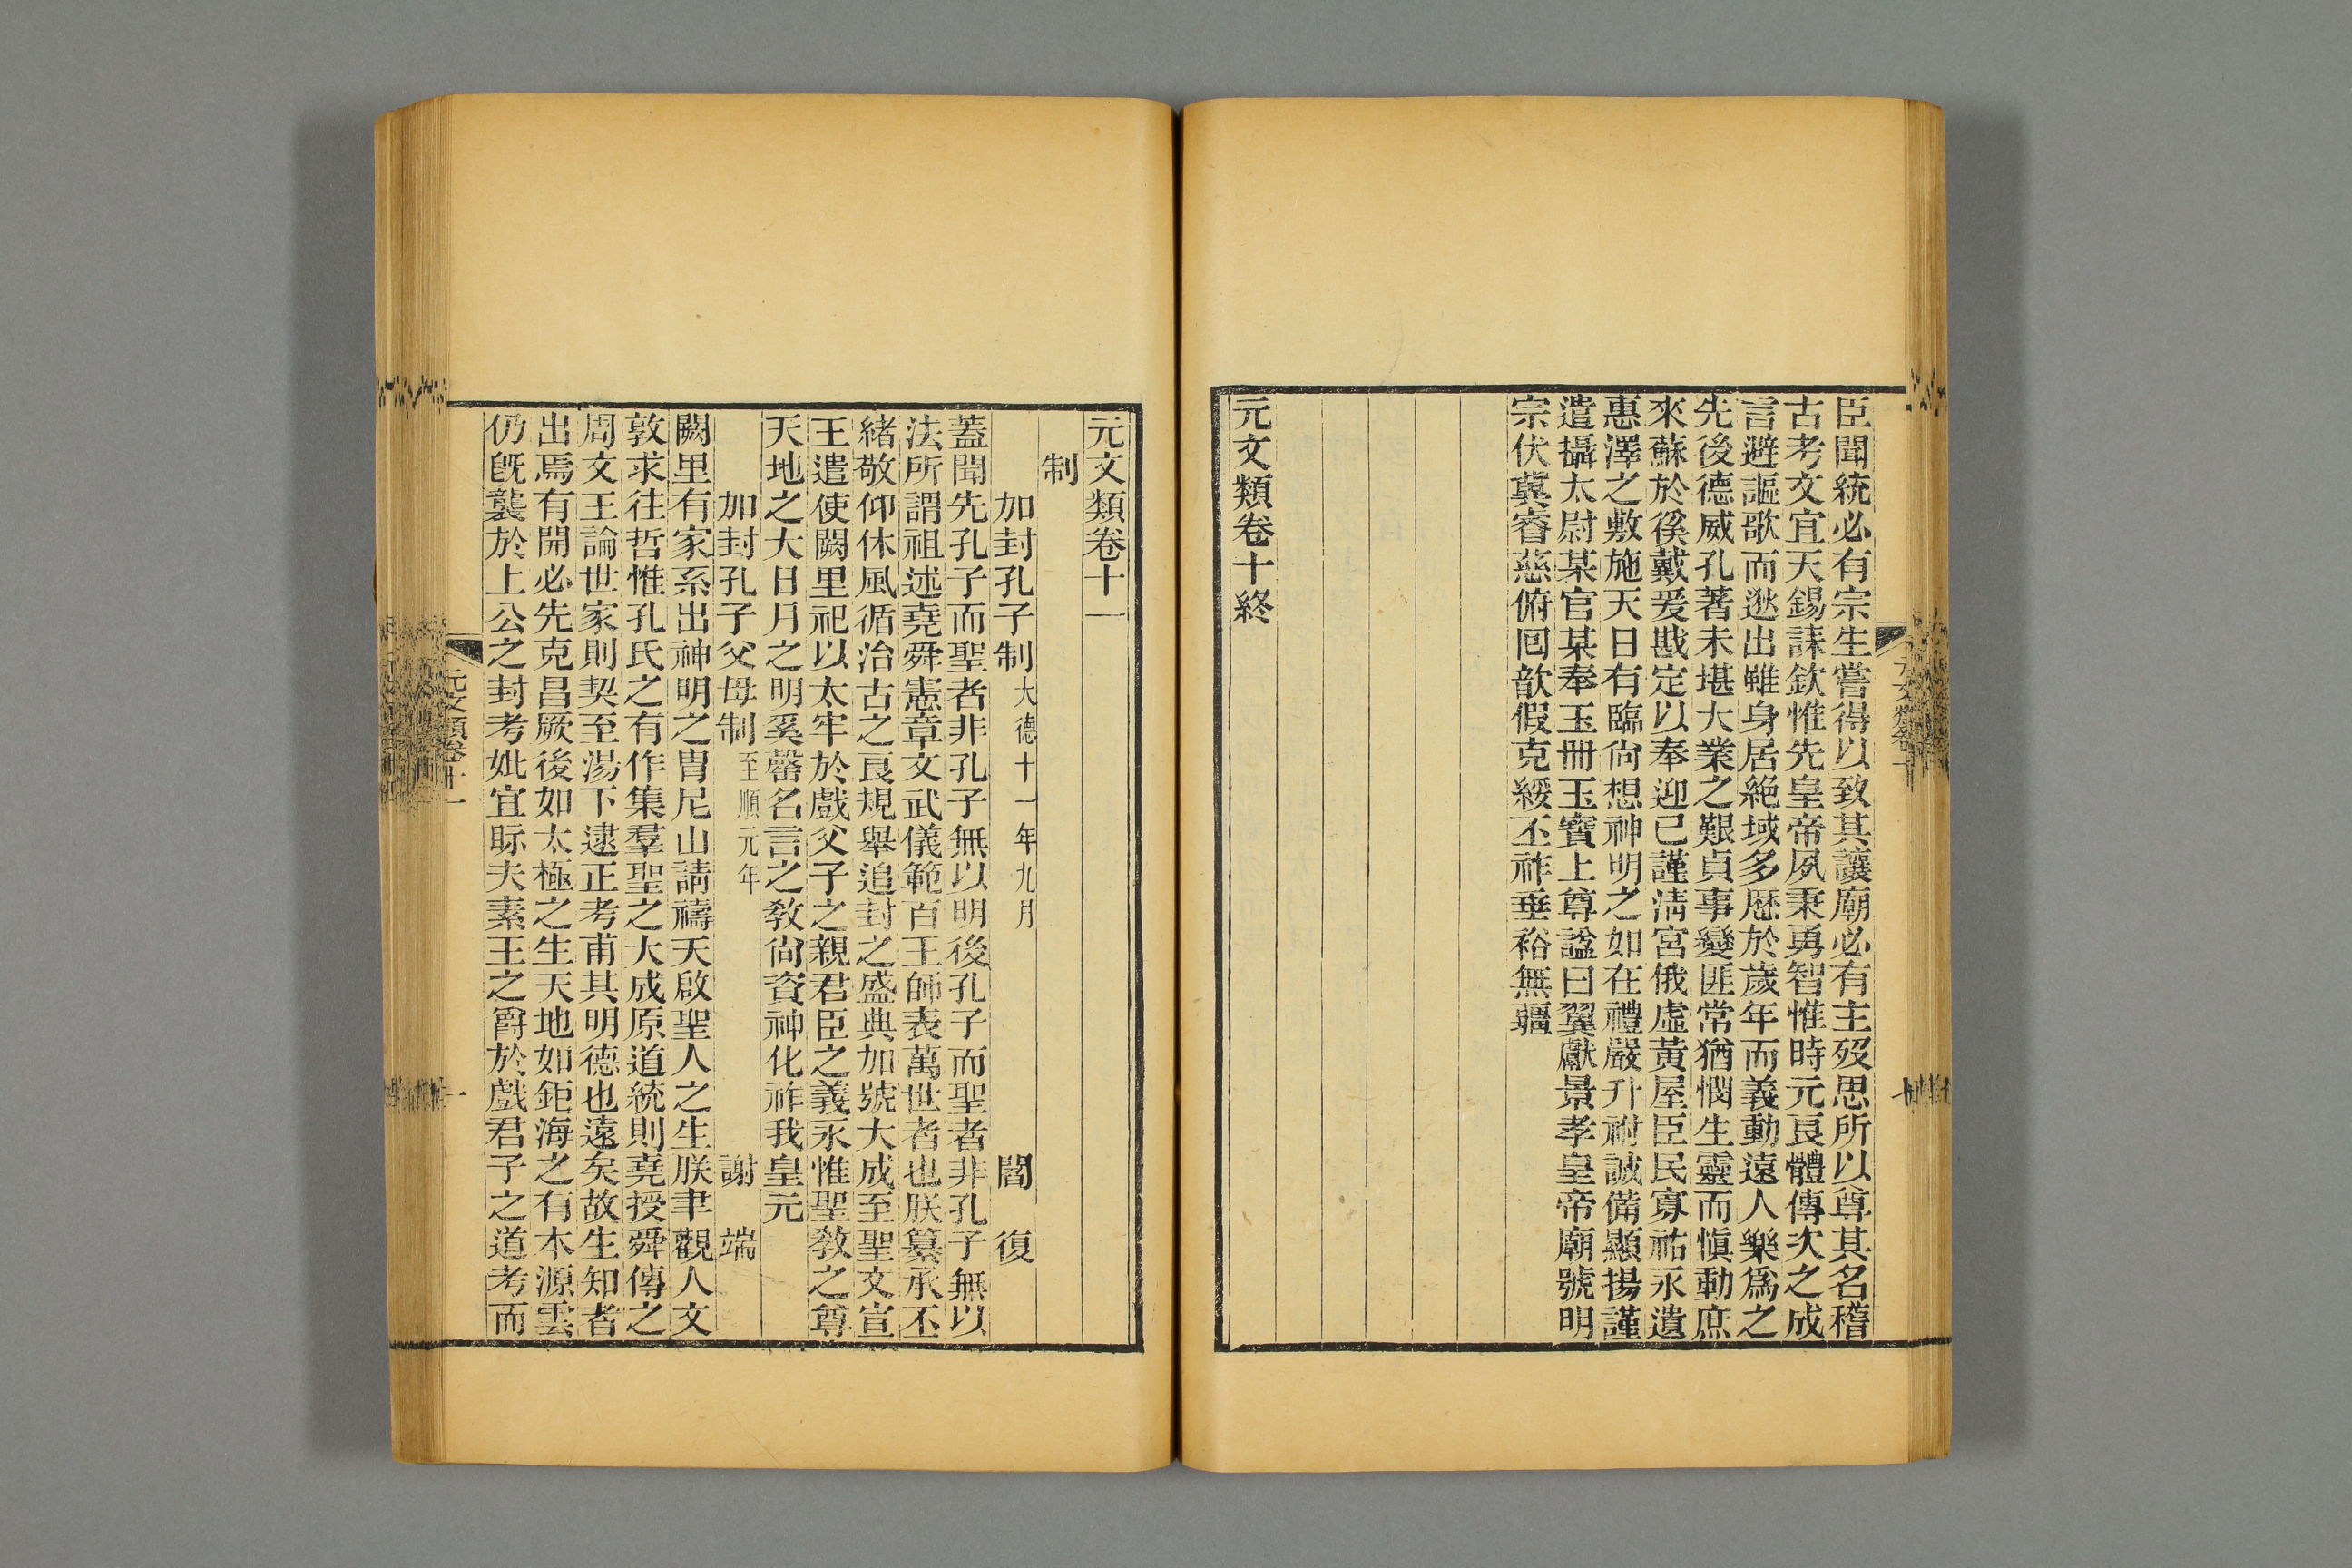 臣聞統必有宗生嘗得以致其讓廟必有主歿思所以尊其名稽
古考文宜天錫誄欽惟先皇帝夙秉勇智惟時元良體傳次之成
言避謳歌而逖出雖身居絶域多歷於歲年而義動遠人樂爲之
先後德威孔著未堪大業之艱貞事變匪常猶憫生靈而愼動庶
來蘇於徯戴爰戡定以奉迎已謹淸宮俄虛黃屋臣民寡祐永遺
惠澤之敷施天日有臨尙想神明之如在禮嚴升祔誠備顯揚謹
遣攝太尉某官某奉玉冊玉寶上尊諡曰翼獻景孝皇帝廟號明
宗伏冀睿慈俯回歆假克綏丕祚垂裕無疆
元文類卷十終
元文類卷十一
制
加封孔子制大德十一年九月 閻復
蓋聞先孔子而聖者非孔子無以明後孔子而聖者非孔子無以
法所謂祖述堯舜憲章文武儀範百王師表萬世者也朕纂承丕
緒敬仰休風循治古之良規舉追封之盛典加號大成至聖文宣
王遣使闕里祀以太牢於戲父子之親君臣之義永惟聖敎之尊
天地之大日月之明奚罄名言之敎尙資神化祚我皇元
加封孔子父母制至順元年 謝端
闕里有家系出神明之胄尼山請禱天啟聖人之生朕聿觀人文
敦求往哲惟孔氏之有作集羣聖之大成原道統則堯授舜傳之
周文王論世家則契至湯下逮正考甫其明德也遠矣故生知者
出焉有開必先克昌厥後如太極之生天地如鉅海之有本源雲
仍旣襲於上公之封考妣宜眎夫素王之爵於戲君子之道考而
元文類卷十一
一